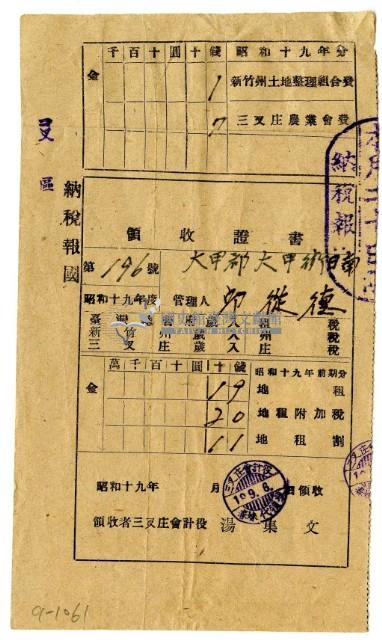 千百十圓十錢 昭和十九年分
金 1 新竹州土地整理組合費
7 三叉庄農業會費
叉
區
納稅報國
納稅報
領收證書
第196號 大甲郡大甲街
昭和十九年度 管理人 邱
臺灣總督府歲入 國稅
新竹州歲入 州稅
三叉庄歲入 庄稅
萬千百十圓十錢 昭和十九年前期分
金 19 地租
20 地租附加稅
11 地租割
昭和十九年 月 日領收
19.9.8
領收者三叉庄會計役 湯集文
9-1061